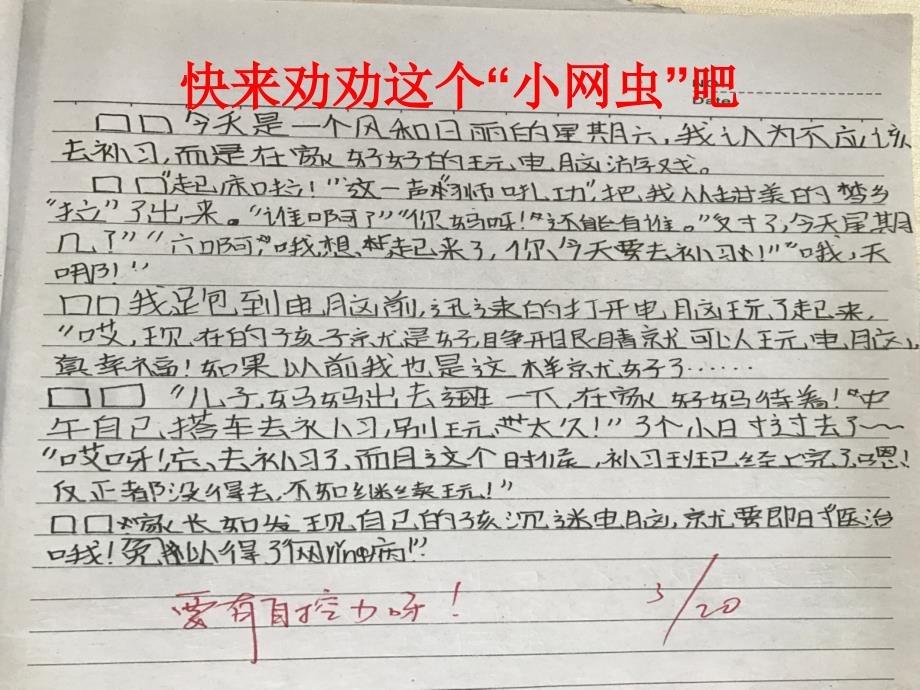 快来劝劝这个“小网虫”吧
No
Date
□□今天是一个风和日丽的星期六，我认为不应该
去补习，而是在家好好的玩电脑游戏。
□□“起床啦！”这一声“狮吼功”，把我从甜美的梦乡
“拉”了出来。“谁啊？”“你妈呀！还能有谁。”“对了，今天星期
几了”“六啊”“哦，想起来了，你今天要去补习！”“哦，天
哪！”
□□我是包到电脑前，迅速的打开电脑玩了起来
“哎，现在的孩子就是好，睁开眼睛就可以玩电脑，
真幸福！如果以前我也是这样就好了……
□□“儿子，妈妈出去一下，在家好好待着！”“中
午自己搭车去补习，别玩太久！”3个小时过去了~~
“哎呀！忘去补习了，而且这个时候，补习班已经上完了嗯！
反正都没得去，不如继续玩！”
□□家长如发现自己的孩沉迷电脑，就要即时医治
哦！免得了“网瘾病”？
要有自控力呀！
3/20